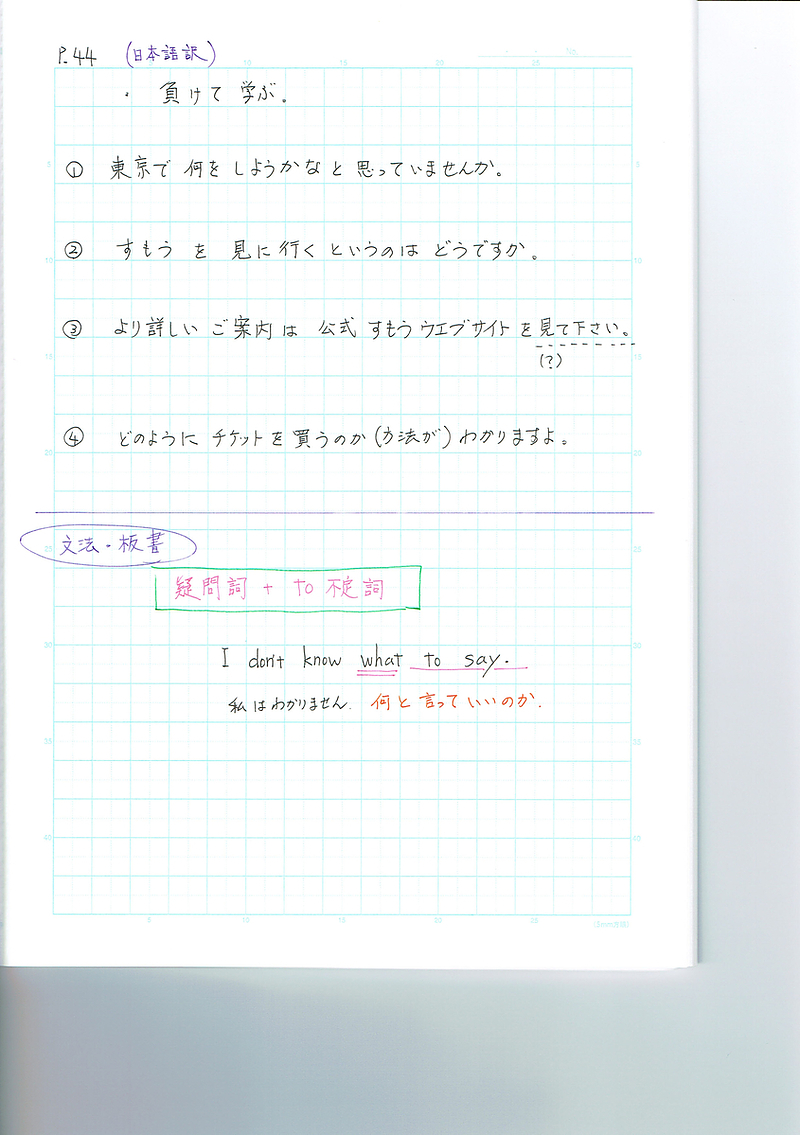 P.44 (日本語訳)
No.
・ 負けて学ぶ。
① 東京で何をしようかなと思っていませんか。
② すもうを見に行くというのはどうですか。
③ より詳しいご案内は公式すもうウエブサイトを見て下さい。
(?)
④ どのようにチケットを買うのか(方法が)わかりますよ。
文法・板書
疑問詞 + to 不定詞
I don't know what to say.
私はわかりません. 何と言っていいのか.